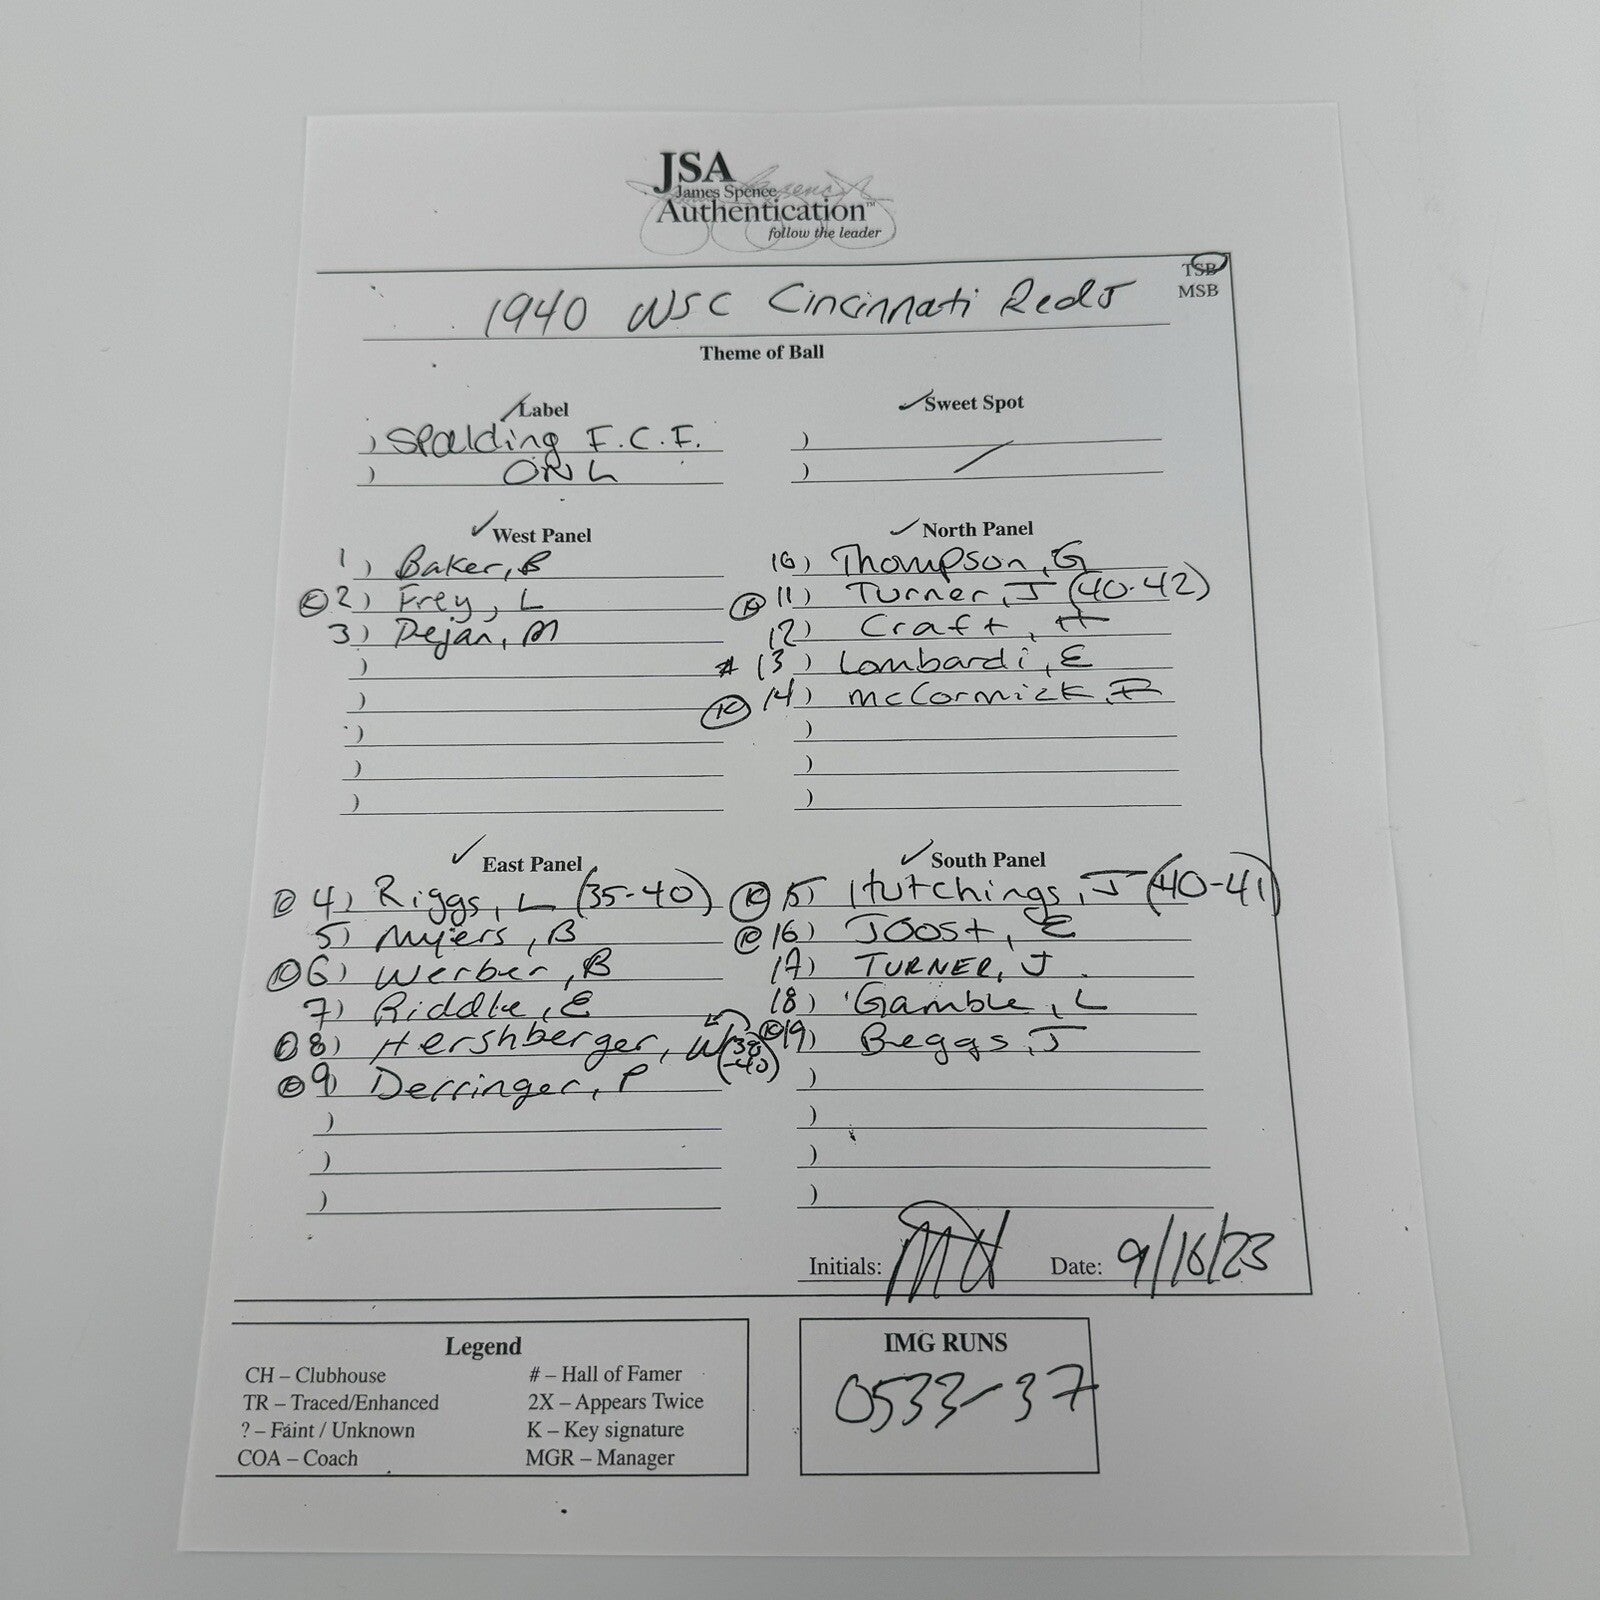 JSA
James Spence
Authentication™
follow the leader
TSB
MSB
1940 WSC Cincinnati Reds
Theme of Ball
Label
) Spalding F.C.F.
) ONL
Sweet Spot
)
)
West Panel
1) Baker, B
K 2) Frey, L
3) Dejan, M
)
)
)
)
)
North Panel
10) Thompson, G
K 11) Turner, J (40-42)
12) Craft, H
# 13) Lombardi, E
K 14) McCormick, F
)
)
)
East Panel
K 4) Riggs, L (35-40)
5) Myers, B
K 6) Werber, B
7) Riddle, E
K 8) Hershberger, W (38-40)
K 9) Derringer, P
)
)
)
South Panel
K 15) Hutchings, J (40-41)
K 16) Joost, E
17) TURNER, J
18) Gamble, L
K 19) Beggs, J
)
)
)
)
Initials: MH Date: 9/16/23
Legend
CH – Clubhouse
TR – Traced/Enhanced
? – Faint / Unknown
COA – Coach
# – Hall of Famer
2X – Appears Twice
K – Key signature
MGR – Manager
IMG RUNS
0533-37